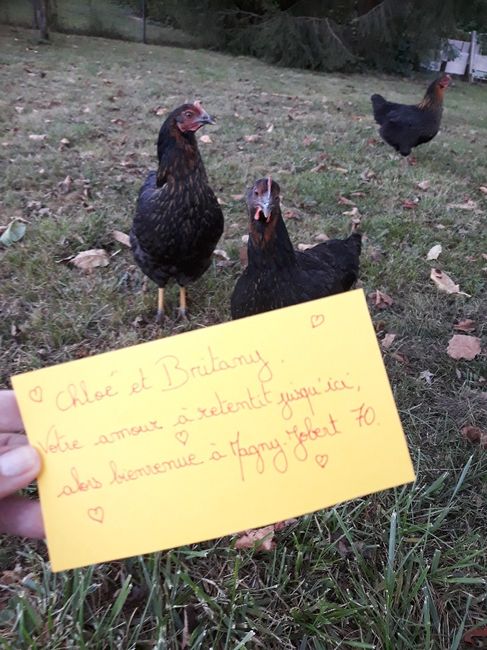 Chloé et Britany.
Votre amour à retentit jusqu'ici,
alors bienvenue à Magny Jobert 70.